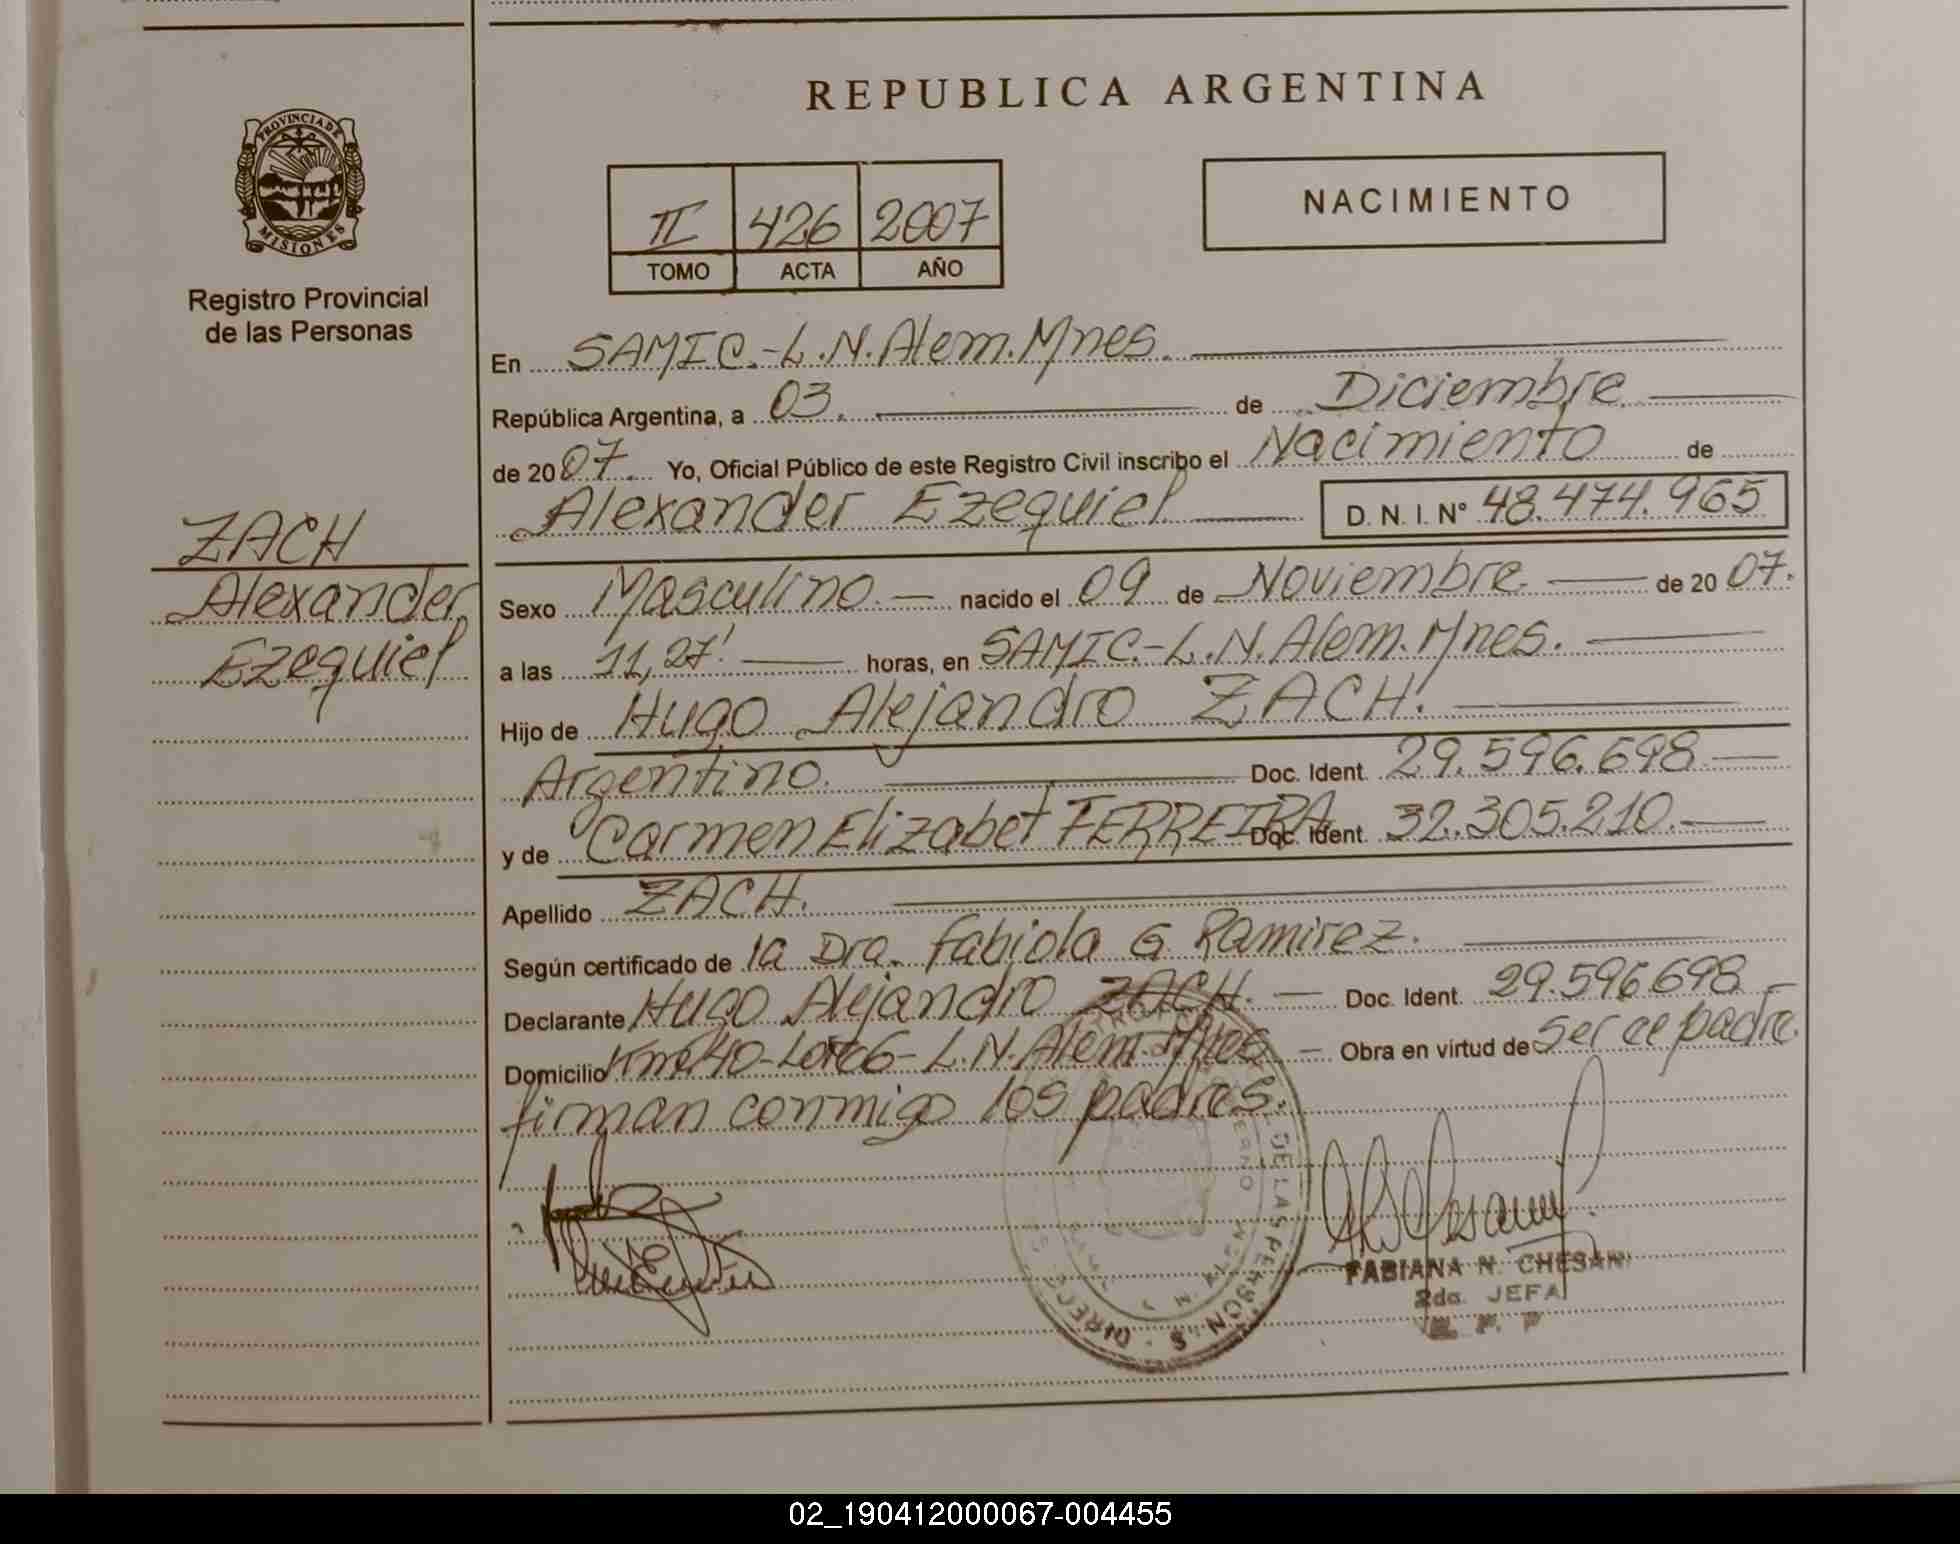 REPUBLICA ARGENTINA
PROVINCIA DE
MISIONES
Registro Provincial
de las Personas
II 426 2007
TOMO ACTA AÑO
NACIMIENTO
En SAMIC.-L.N.Alem.Mnes.
República Argentina, a 03. de Diciembre
de 2007. Yo, Oficial Público de este Registro Civil inscribo el Nacimiento de
Alexander Ezequiel D.N.I. N° 48.474.965
ZACH
Alexander
Ezequiel
Sexo Masculino.- nacido el 09 de Noviembre de 2007.
a las 11,27' horas, en SAMIC.-L.N.Alem.Mnes.
Hijo de Hugo Alejandro ZACH.
Argentino. Doc. Ident. 29.596.698
y de Carmen Elizabet FERREIRA Doc. Ident. 32.305.210.
Apellido ZACH.
Según certificado de la Dra. Fabiola G Ramirez.
Declarante Hugo Alejandro ZACH. Doc. Ident. 29.596.698
Domicilio Km 40-Lote 6-L.N.Alem.Mnes Obra en virtud de Ser el padre.
firman conmigo los padres.
DE LAS PERSONAS
FABIANA N. CHESANI
2da. JEFA
02_190412000067-004455